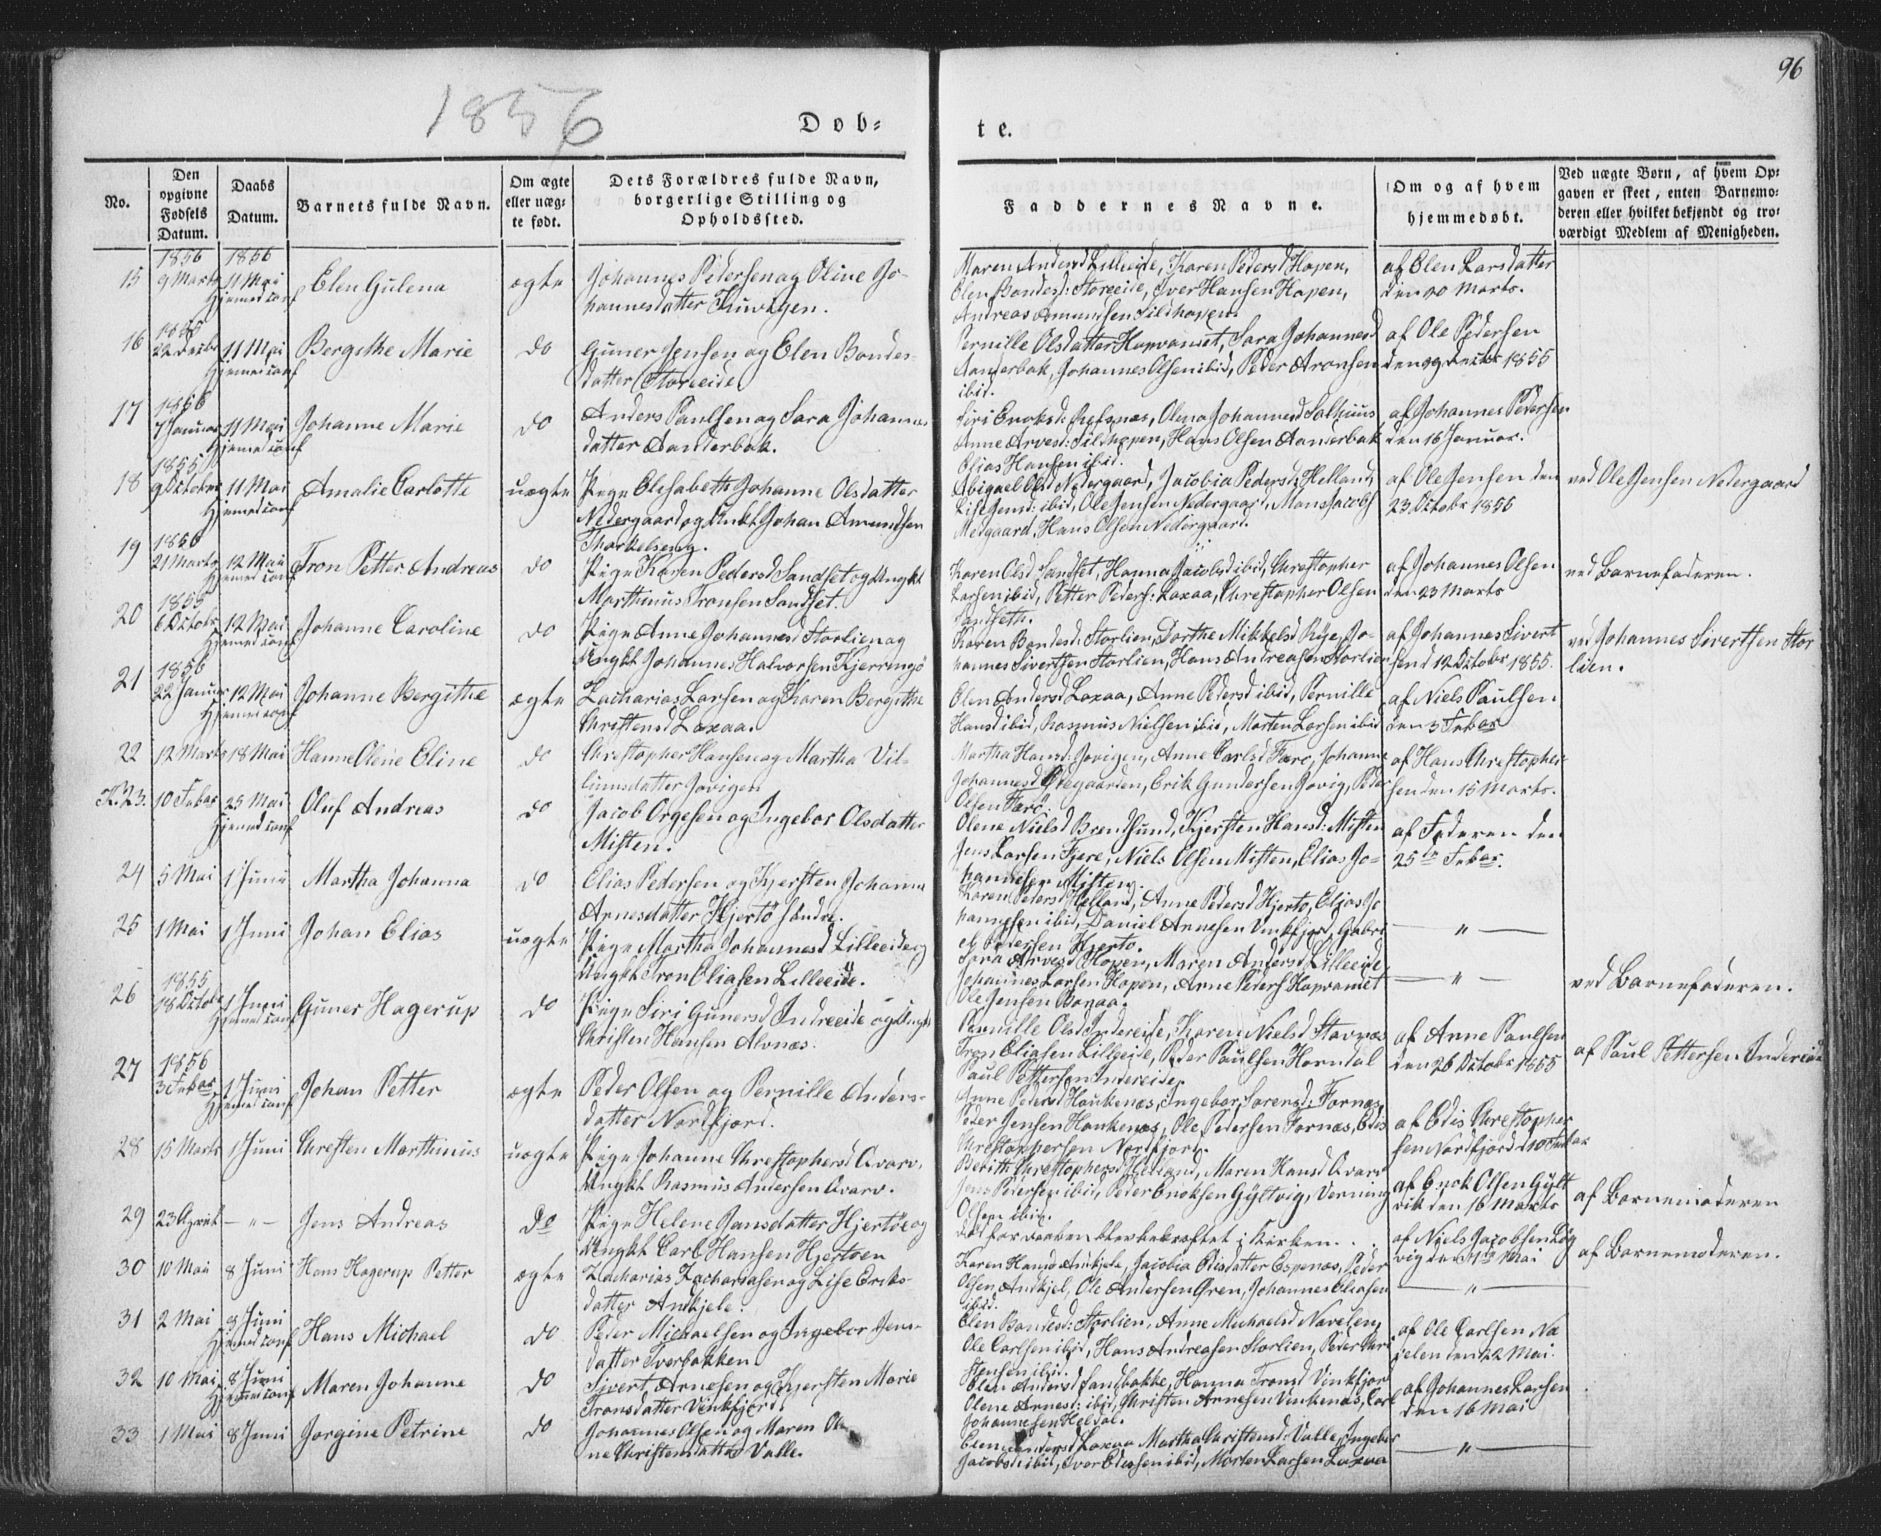 96
1856
Døb-
te.
No.
Den opgivne Fødsels Datum.
Daabs Datum.
Barnets fulde Navn.
Om ægte eller uægte født.
Dets Forældres fulde Navn, borgerlige Stilling og Opholdssted.
Faddernes Navne.
Om og af hvem hjemmedøbt.
Ved uægte Børn, af hvem Opgaven er skeet, enten Barnemoderen eller hvilket bekjendt og troværdigt Medlem af Menigheden.
1856 1856
15 9 Marts 11 Mai Elen Gulena ægte Johannes Pedersen og Oline Jo-
Hjemed conf hannesdatter
Maren Andersd Lilleeide, Karen Pedersd Hopen,
Elen Bondesd: Storeeide, Iver Hansen Hopen,
Andreas Amundsen Sildhopen.
af Elen Larsdatter
den 20 Marts.
1855
16 22 Decbr 11 Mai Bergithe Marie do Guner Jensen og Elen Bondes-
Hjemed conf datter Storeeide
Pernille Olsdatter Hopvandet, Sara Johannesd
Aanderbak, Johannes Olsen ibid, Peder Aronsen
ibid.
af Ole Pedersen
den 29 Decbr 1855
1856
17 7 Januar 11 Mai Johanne Marie do Anders Paulsen og Sara Johannes
Hjemed conf datter Aanderbak.
Siri Enoksd: Refsnæs, Olena Johannesd
Anne Arvesd: Sildhopen, Hans Olsen Aanderbak
Elias Hansen ibid.
af Johannes Pedersen
den 16 Januar.
1855
18 9 Octobr 11 Mai Amalie Carlotte uægte Pige Elisabeth Johanne Olsdatter
Hjemed conf Nedergaard og Unkt Johan Amundsen
Thorkelseng.
Abigael Olsd Nedergaard, Jacobia Pedersd: Helland,
Lise Jensd: ibid, Ole Jensen Nedergaard, Mons Jacobs
Medgaard, Hans Olsen Nedergaard.
af Ole Jensen den
23 Octobr 1855
ved Ole Jensen Nedergaard
1856
19 21 Marts 12 Mai Tron Petter Andreas do Pige Karen Pedersd Sandset og Ungkt
Hjemed conf Marthinus Tronsen Sandset.
Karen Olsd Sandset, Hanna Jacobsd ibid, Christopher
Larsen ibid, Petter Peders: Laxaa, Christopher Olsen
Sandseth.
af Johannes Olsen
den 23 Marts
ved Barnefaderen.
1855
20 6 Octobr 12 Mai Johanne Caroline do Pige Anne Johannesd Storlien og
Hjemed conf Ungkt Johannes Halvorsen Kjerringø
Karen Bondesd: Storlien, Dorthe Mikkelsd Røe, Jo-
hannes Sivertsen Storlien, Hans Andreasen Storlien
af Johannes Sivert
sen d 12 Octobr 1855.
ved Johannes Sivertsen Stor
lien.
1856
21 22 Januar 12 Mai Johanne Bergithe ægte Zacharias Larsen og Karen Bergithe
Hjemed conf Christensd Laxaa.
Elen Andersd Laxaa, Anne Pedersd ibid, Pernille
Hansd ibid, Rasmus Nielsen ibid, Morten Larsen ibid
af Niels Paulsen
den 3 Febar
22 12 Marts 18 Mai Hanne Oline Eline do Christopher Hansen og Martha Vil-
lumsdatter Jovigen
Martha Hansd: Jovigen, Anne Carlsd Færø, Johanne
Johannesd Ødegaarden, Erik Gundersen Jovig, Peder
Olsen Færø.
af Hans Christopher
sen den 15 Marts.
K. 23. 10 Febar 25 Mai Oluf Andreas do Jacob Orgesen og Ingebor Olsdatter
Hjemed conf Misten.
Olene Nielsd Brendsund, Kjersten Hansd: Misten
Jens Larsen Fjere, Niels Olsen Misten, Elias Jo-
hannesen Misten.
af Faderen den
25de Febar.
24 5 Mai 1 Juni Martha Johanna do Elias Pedersen og Kjersten Johanna
Arnesdatter Hjertø søndre.
Karen Pedersd Helland, Anne Pedersd Hjertø, Elias Jo
hannesen ibid, Daniel Arnesen Vinkfjord, Gabri
el Pedersen Hjertø.
— " —
25 1 Mai 1 Juni Johan Elias uægte Pige Martha Johannesd Lilleeide og
Ungkt Tron Eliasen Lilleeide.
Sara Arvesd Hopen, Maren Andersd Lilleeide,
Johannes Larsen Hopen, Arne Peders Hopvandet
Ole Jensen Bogaa.
— " —
ved Barnefaderen.
1855
26 18 Octobr 1 Juni Guner Hagerup do Pige Siri Gunersd Indreeide og Ungkt
Hjemed conf Christen Hansen Alvnæs.
Pernille Olsd Indreeide, Karen Nielsd Stavnæs
Tron Eliasen Lilleeide, Peder Paulsen Horndal
Paul Pettersen Indereide.
af Anne Paulsen
den 26 Octobr 1855
af Paul Pettersen Indereide
1856
27 3 Febar 1 Juni Johan Petter ægte Peder Olsen og Pernille Anders-
Hjemed conf datter Nordfjord.
Anne Pedersd Haukenæs, Ingebor Sorensd: Fornæs,
Peder Jensen Haukenæs, Ole Pedersen Fornæs, Edis
Christophersen Nordfjord.
af Edis Christopher
sen Nordfjord d 10 Febar
28 15 Marts 1 Juni Christen Marthinus uægte Pige Johanne Christophersd Qvarv,
Ungkt Rasmus Andersen Qvarv.
Berith Christophersd Helland, Maren Hansd Qvarv
Jens Pedersen ibid, Peder Enoksen Gyltvig, Verning
Olsen ibid.
af Enok Olsen Gylt
vik den 16 Marts
af Barnemoderen
29 23 April — " — Jens Andreas do Pige Helene Jansdatter Hjertøe og
Ungkt Carl Hansen Hjertøen
Død før Daaben blev bekræftet i Kirken.
af Niels Jacobsen Løg
vig den Mai
af Barnemoderen.
30 10 Mai 8 Juni Hans Hagerup Petter ægte Zacharias Zachariasen og Lise Eriks-
datter Andkjele.
Karen Hansd Ankjele, Jacobia Edisdatter Espenæs, Peder
Olsen Andkjel, Ole Andersen Gren, Johannes Eliasen
ibid.
— " —
31 2 Mai 8 Juni Hans Michael do Peder Michaelsen og Ingebor Jens-
Hjemed conf datter Tverbakken
Elen Bondesd: Storlien, Anne Michaelsd Navelen,
Ole Carlsen ibid, Hans Andreasen Storlien, Peder Chri
stensen ibid.
af Ole Carlsen Na
velen den 22 Mai.
32 10 Mai 8 Juni Maren Johanne do Sivert Arnesen og Kjersten Marie
Hjemed conf Tronsdatter Vinkfjord
Elen Andersd Sandbakke, Hanna Tronsd Vinkfjor
Olene Arnesd: ibid, Christen Arnesen Vinkenæs, Carl
Johannesen Heldal.
af Johannes Larsen
den 16 Mai
33 1 Mai 8 Juni Jorgine Petrine do Johannes Olsen og Maren
ne Christensdatter Valle.
Elen Andersd Laxaa Martha Christensd: Valle, Ingebor
Jacobsd ibid, Iver Edissen ibid, Morten Larsen Laxaa
— " —